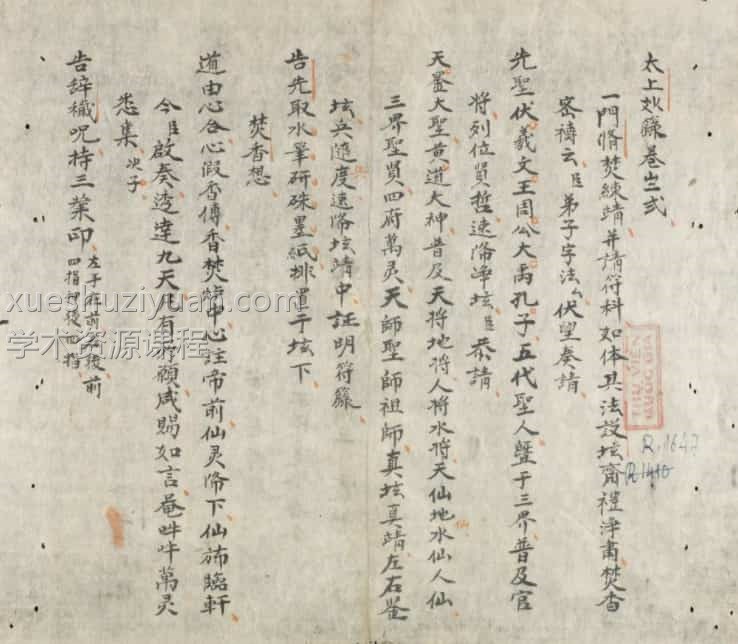 太上𡗶籙卷之弍
一門脩焚練靖并請符科如体其法設坛齋禮淨肅焚香
密禱云臣弟子字法厶伏望奏請
先聖伏羲文王周公大禹孔子五代聖人曁于三界普及官
將列位賢哲速降坛臣恭請
天罡大聖黄道大神普及天將地將人將水將天仙地水仙人仙
仙
三界聖賢四府萬灵天師聖師祖師真坛真靖左右
坛兵隨度速降坛靖中証明符籙
告先取水筆研硃墨紙排置于坛下
焚香想
道由心合心假香傳香焚炉中心註帝前仙灵降下仙旆臨軒
今臣啟奏逵達九天凡有願咸賜如言萬灵
悉集次子
告辞穢呪持三業印
左手在前後前
四指四指
THƯ VIỆN
QUỐC GIA
R.1647
R.1410
xueshuziyuan.com
学术资源课程